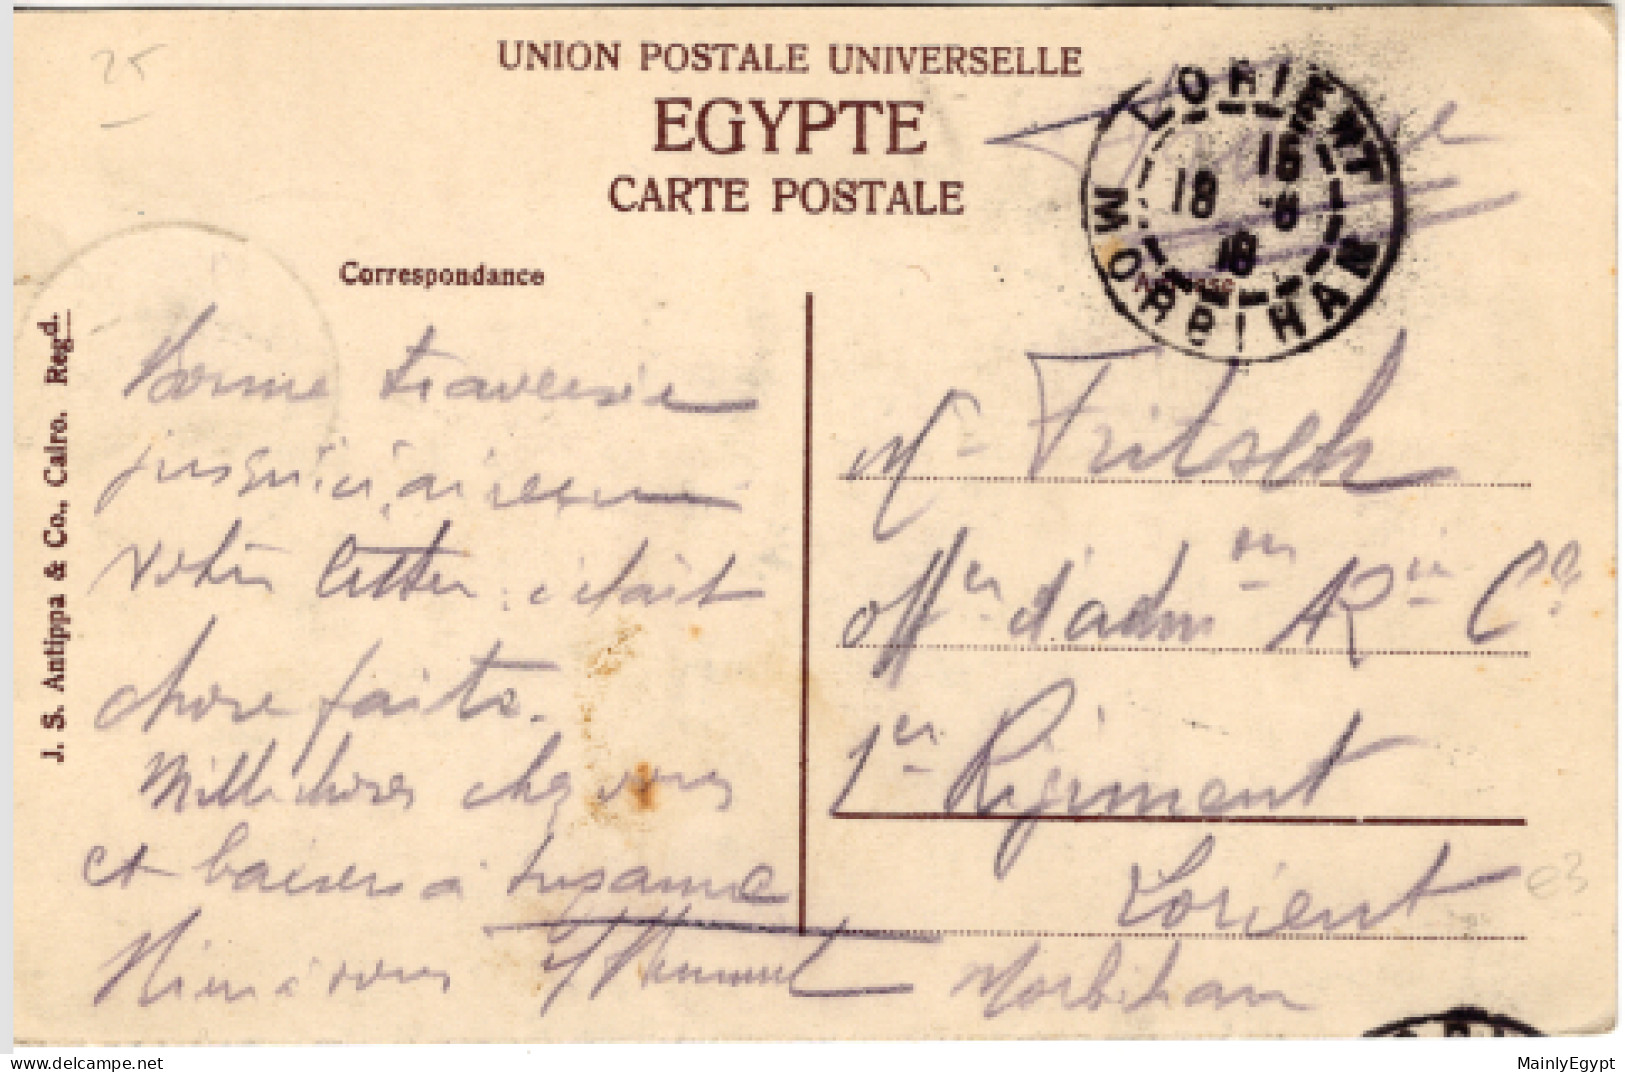 25
UNION POSTALE UNIVERSELLE
EGYPTE
CARTE POSTALE
LORIENT
15
18 - 6
18
MORBIHAN
Correspondance
J. S. Antippa & Co., Cairo. Regd.
Bonne traversée
jusqu'ici, ai reçu
votre lettre, c'était
chose faite.
Mille choses chez vous
et baisers à Suzanne
Bien à vous
Mr Fritsch
Offer d'admon Arie Cle
1er Régiment
Lorient
Morbihan
e3
delcampe.net
MainlyEgypt